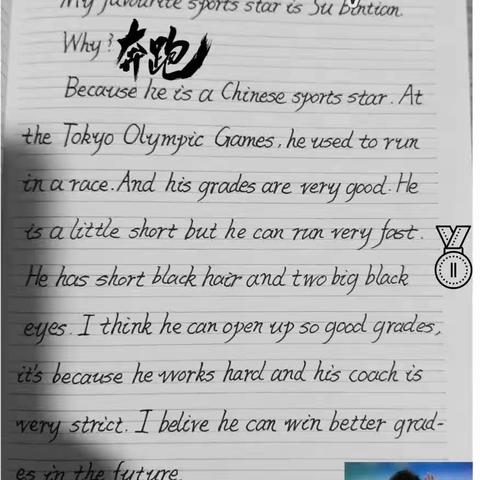 My favourite sports star is Su bintian.
Why? 奔跑
Because he is a Chinese sports star. At
the Tokyo Olympic Games, he used to run
in a race. And his grades are very good. He
is a little short but he can run very fast.
He has short black hair and two big black
eyes. I think he can open up so good grades,
it's because he works hard and his coach is
very strict. I belive he can win better grad-
es in the future.